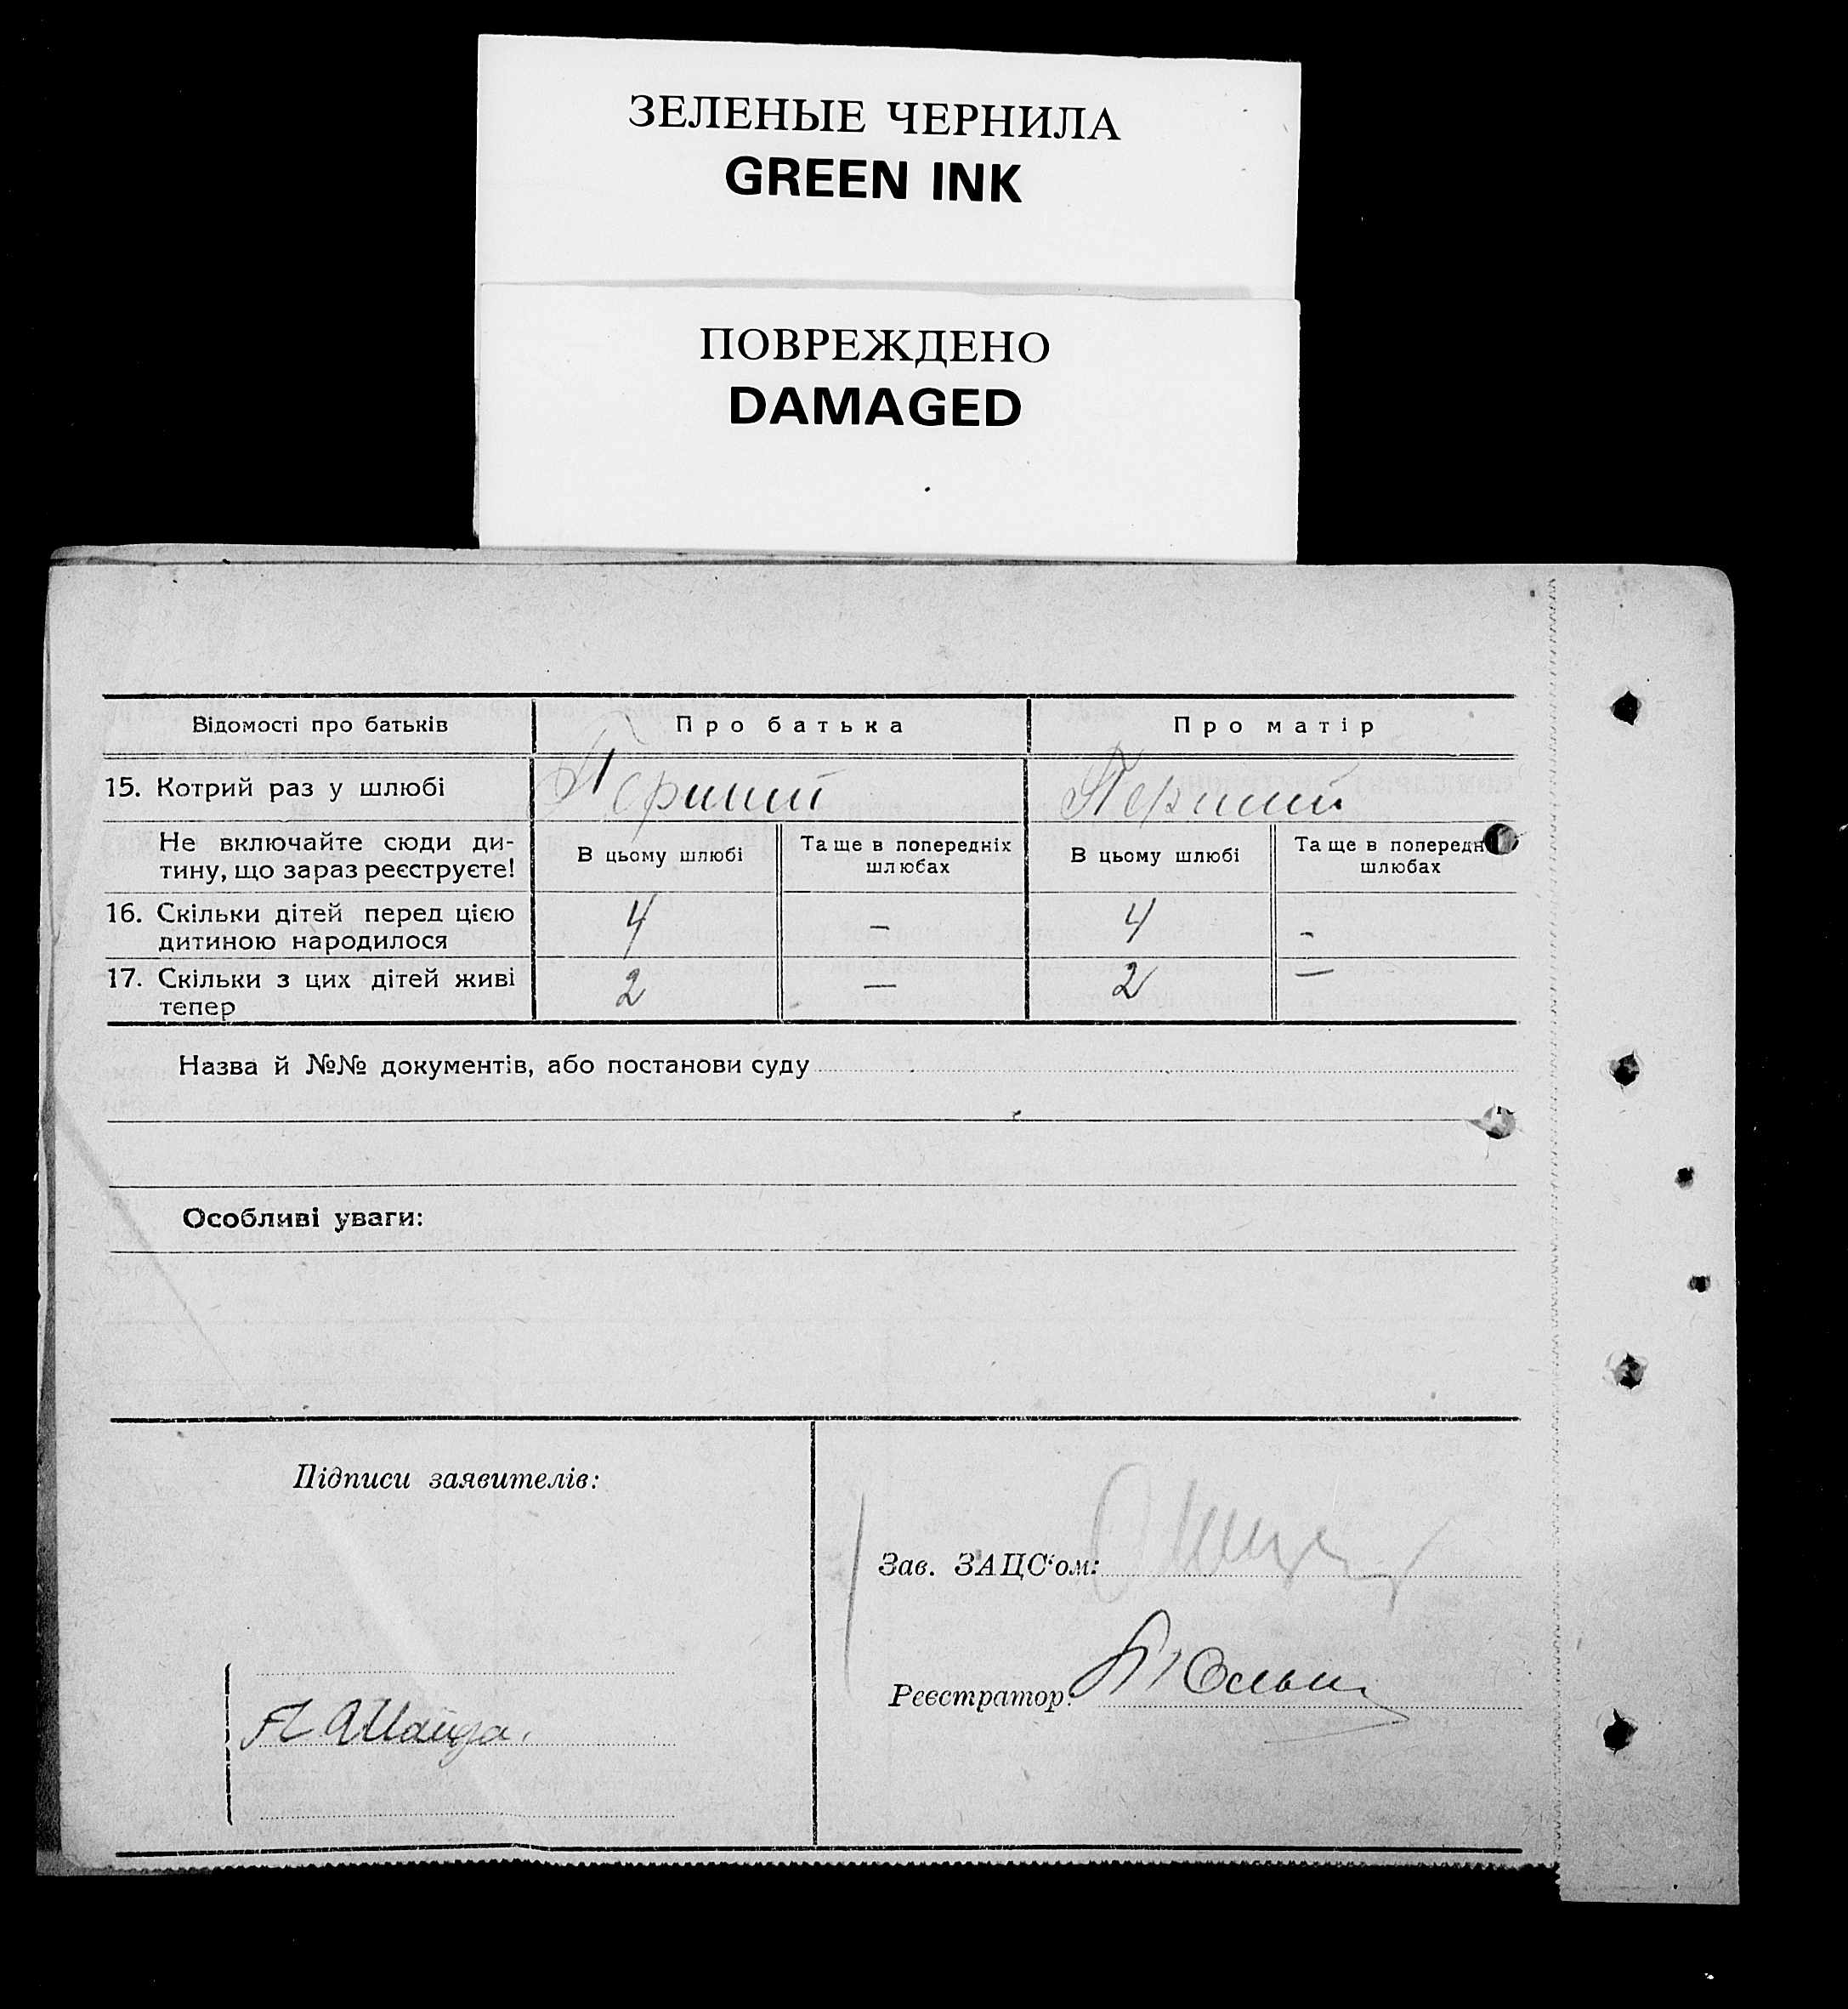 ЗЕЛЕНЫЕ ЧЕРНИЛА
GREEN INK
ПОВРЕЖДЕНО
DAMAGED
Відомості про батьків
Про батька
Про матір
15. Котрий раз у шлюбі
Перший
Перший
Не включайте сюди ди-
тину, що зараз реєструєте!
В цьому шлюбі
Та ще в попередніх
шлюбах
В цьому шлюбі
Та ще в попередн
шлюбах
16. Скільки дітей перед цією
дитиною народилося
4
–
4
–
17. Скільки з цих дітей живі
тепер
2
–
2
–
Назва й №№ документів, або постанови суду
Особливі уваги:
Підписи заявителів:
Зав. ЗАЦС'ом:
Реєстратор: